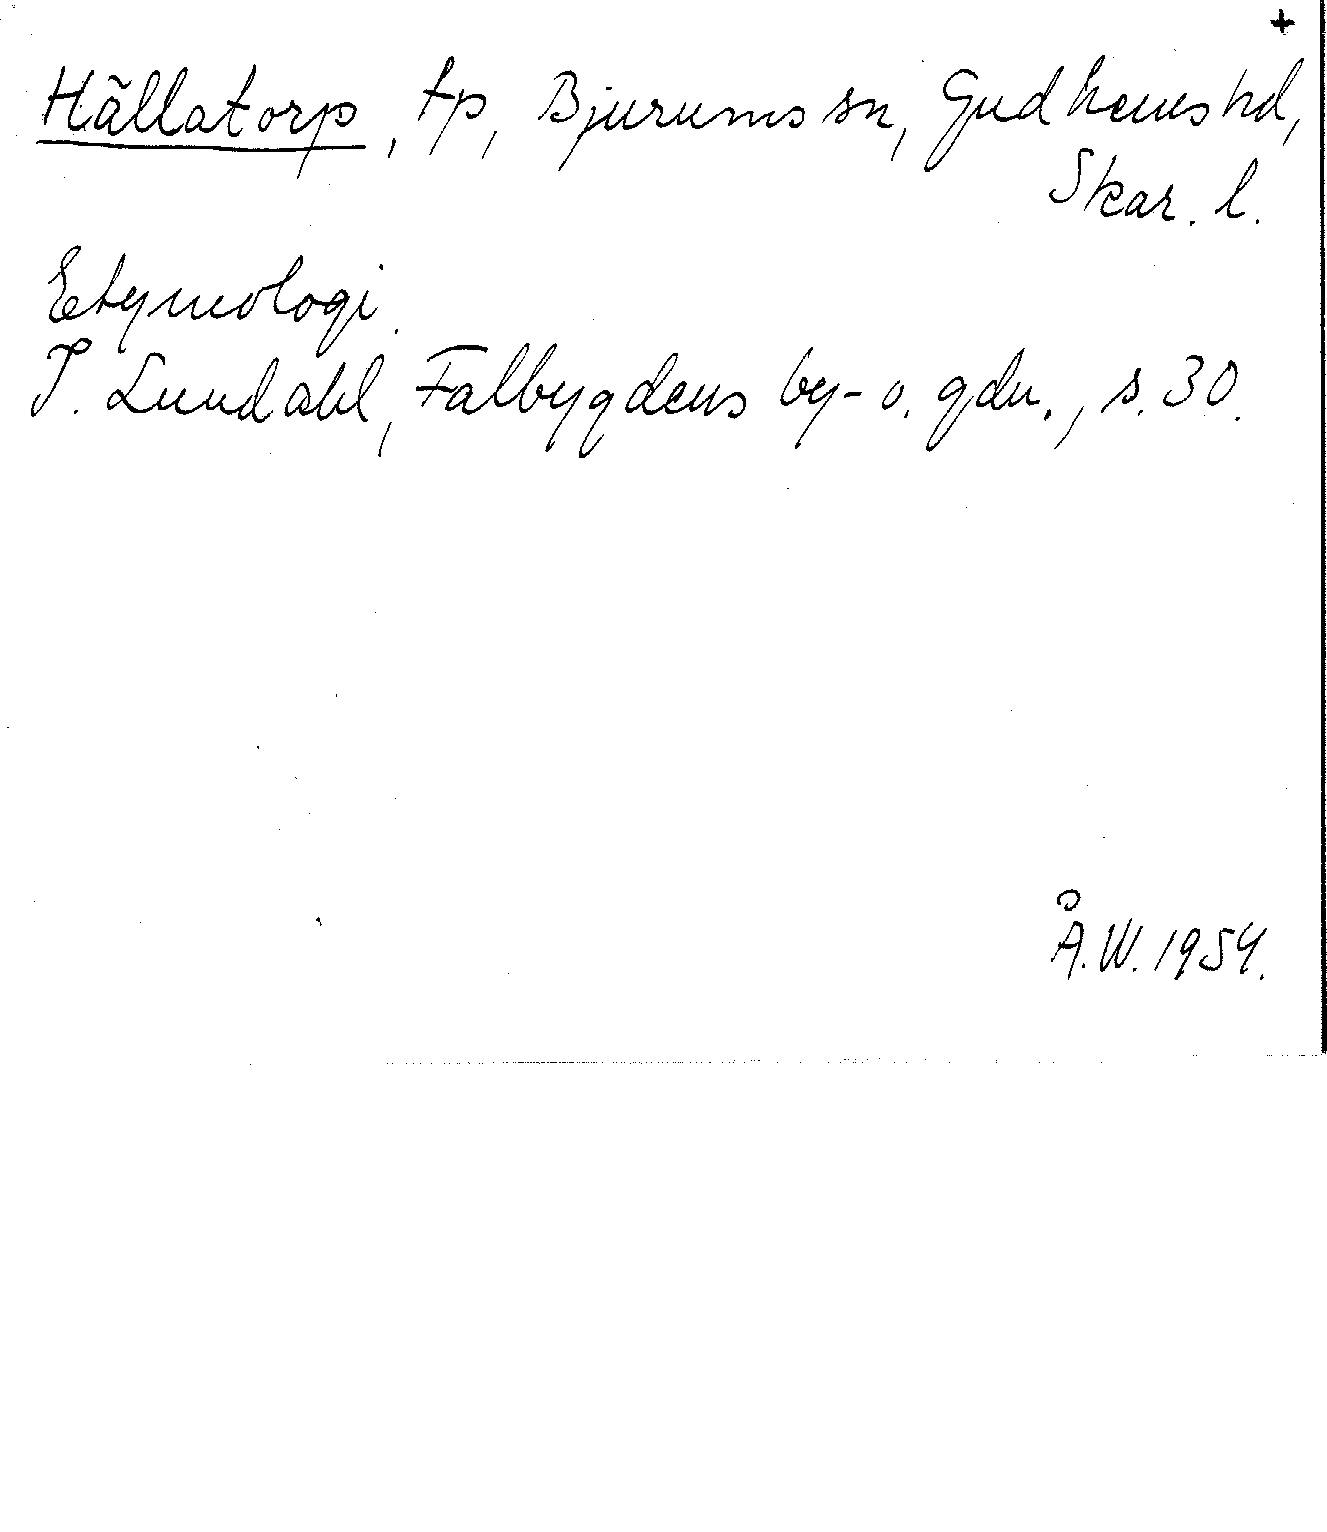 +
Hällatorp, tp, Bjurums sn, Gudhems hd,
Skar. l.
Etymologi.
I. Lundahl, Falbygdens by- o. gdn., s. 30.
Å.W. 1954.